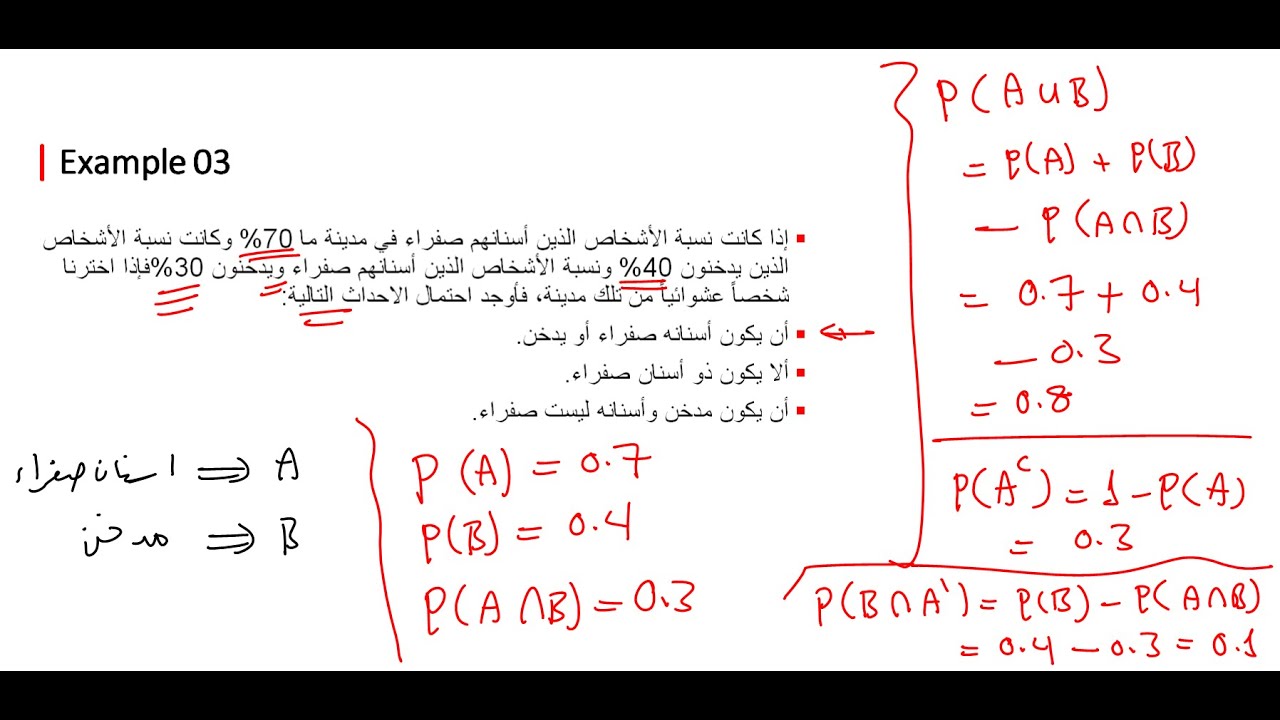 Example 03
إذا كانت نسبة الأشخاص الذين أسنانهم صفراء في مدينة ما 70% وكانت نسبة الأشخاص
الذين يدخنون 40% ونسبة الأشخاص الذين أسنانهم صفراء ويدخنون 30%فإذا اخترنا
شخصاً عشوائياً من تلك مدينة، فأوجد احتمال الاحداث التالية:
أن يكون أسنانه صفراء أو يدخن.
ألا يكون ذو أسنان صفراء.
أن يكون مدخن وأسنانه ليست صفراء.
A ⇒ اسنان صفراء
B ⇒ مدخن
P(A) = 0.7
P(B) = 0.4
P(A∩B) = 0.3
P(A∪B)
= P(A) + P(B)
− P(A∩B)
= 0.7 + 0.4
− 0.3
= 0.8
P(Aᶜ) = 1 − P(A)
= 0.3
P(B∩A') = P(B) − P(A∩B)
= 0.4 − 0.3 = 0.1